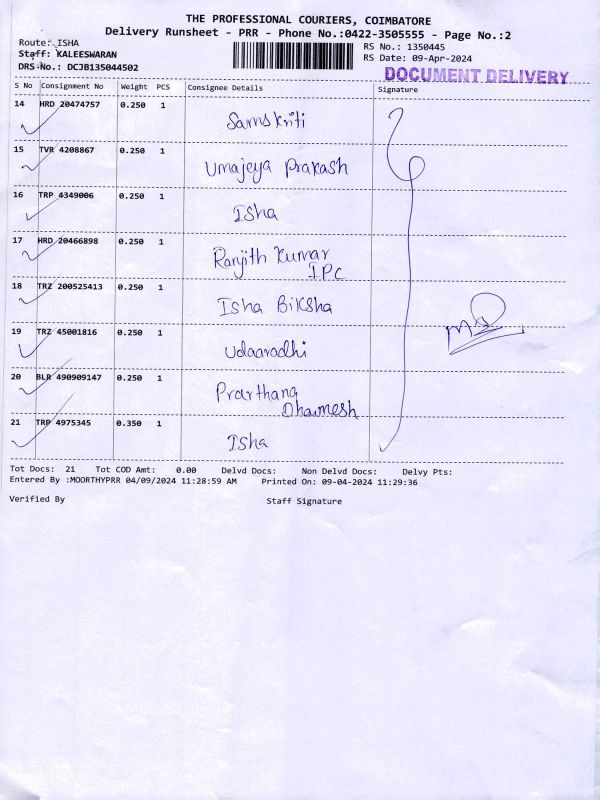 THE PROFESSIONAL COURIERS, COIMBATORE
Delivery Runsheet - PRR - Phone No.:0422-3505555 - Page No.:2
Route: ISHA
RS No.: 1350445
Staff: KALEESWARAN
RS Date: 09-Apr-2024
DRS No.: DCJB135044502
DOCUMENT DELIVERY
S No Consignment No Weight PCS Consignee Details Signature
14 HRD 20474757 0.250 1
Samskriti
15 TVR 4208867 0.250 1
Umajeya Prakash
16 TRP 4349006 0.250 1
Isha
17 HRD 20466898 0.250 1
Ranjith Kumar
IPC
18 TRZ 200525413 0.250 1
Isha Biksha
19 TRZ 45001816 0.250 1
Udaaradhi
20 BLR 490909147 0.250 1
Prarthana
Dharmesh
21 TRP 4975345 0.350 1
Isha
Tot Docs: 21 Tot COD Amt: 0.00 Delvd Docs: Non Delvd Docs: Delvy Pts:
Entered By :MOORTHYPRR 04/09/2024 11:28:59 AM Printed On: 09-04-2024 11:29:36
Verified By Staff Signature